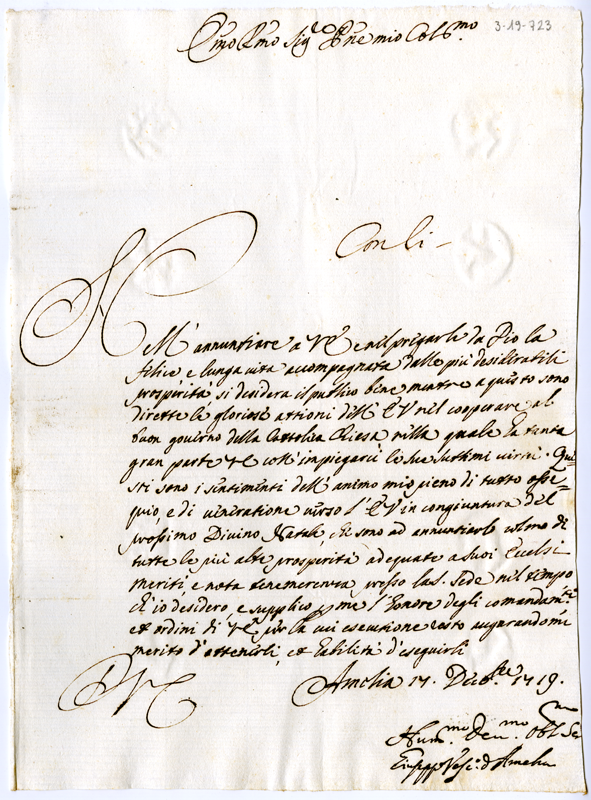 3-19-723
Emo Rmo Sig.r Pne mio Colmo
Conli
Nell' annuntiare a V.E. e nel pregarle da Dio la
felice e lunga vita accompagnata dalle più desiderabili
prosperità si desidera il publico bene mentre a questo sono
dirette le gloriose attioni dell' E.V. nel cooperare al
buon governo della Cattolica Chiesa nella quale ha tanta
gran parte V.E. coll' impiegarci le sue sublimi virtù. Que-
sti sono i sentimenti dell' animo mio pieno di tutto osse-
quio, e di veneratione verso l' E.V. in congiuntura del
prossimo Divino Natale, che sono ad annuntiarle colmo di
tutte le più alte prosperità adequate a suoi Eccelsi
meriti e nota benemerenza presso la S. Sede nel tempo
ch' io desidero, e supplico p me l' honore degli comandam.ti
et ordini di V.E. per la cui esecutione resto augurandomi
merito d' ottenerli, et habilità d' eseguirli
Amelia 17. Decb.re 1719.
D V E
Hum.mo Dev.mo Obl.mo Se
Giuseppe Vesc.o d' Amelia